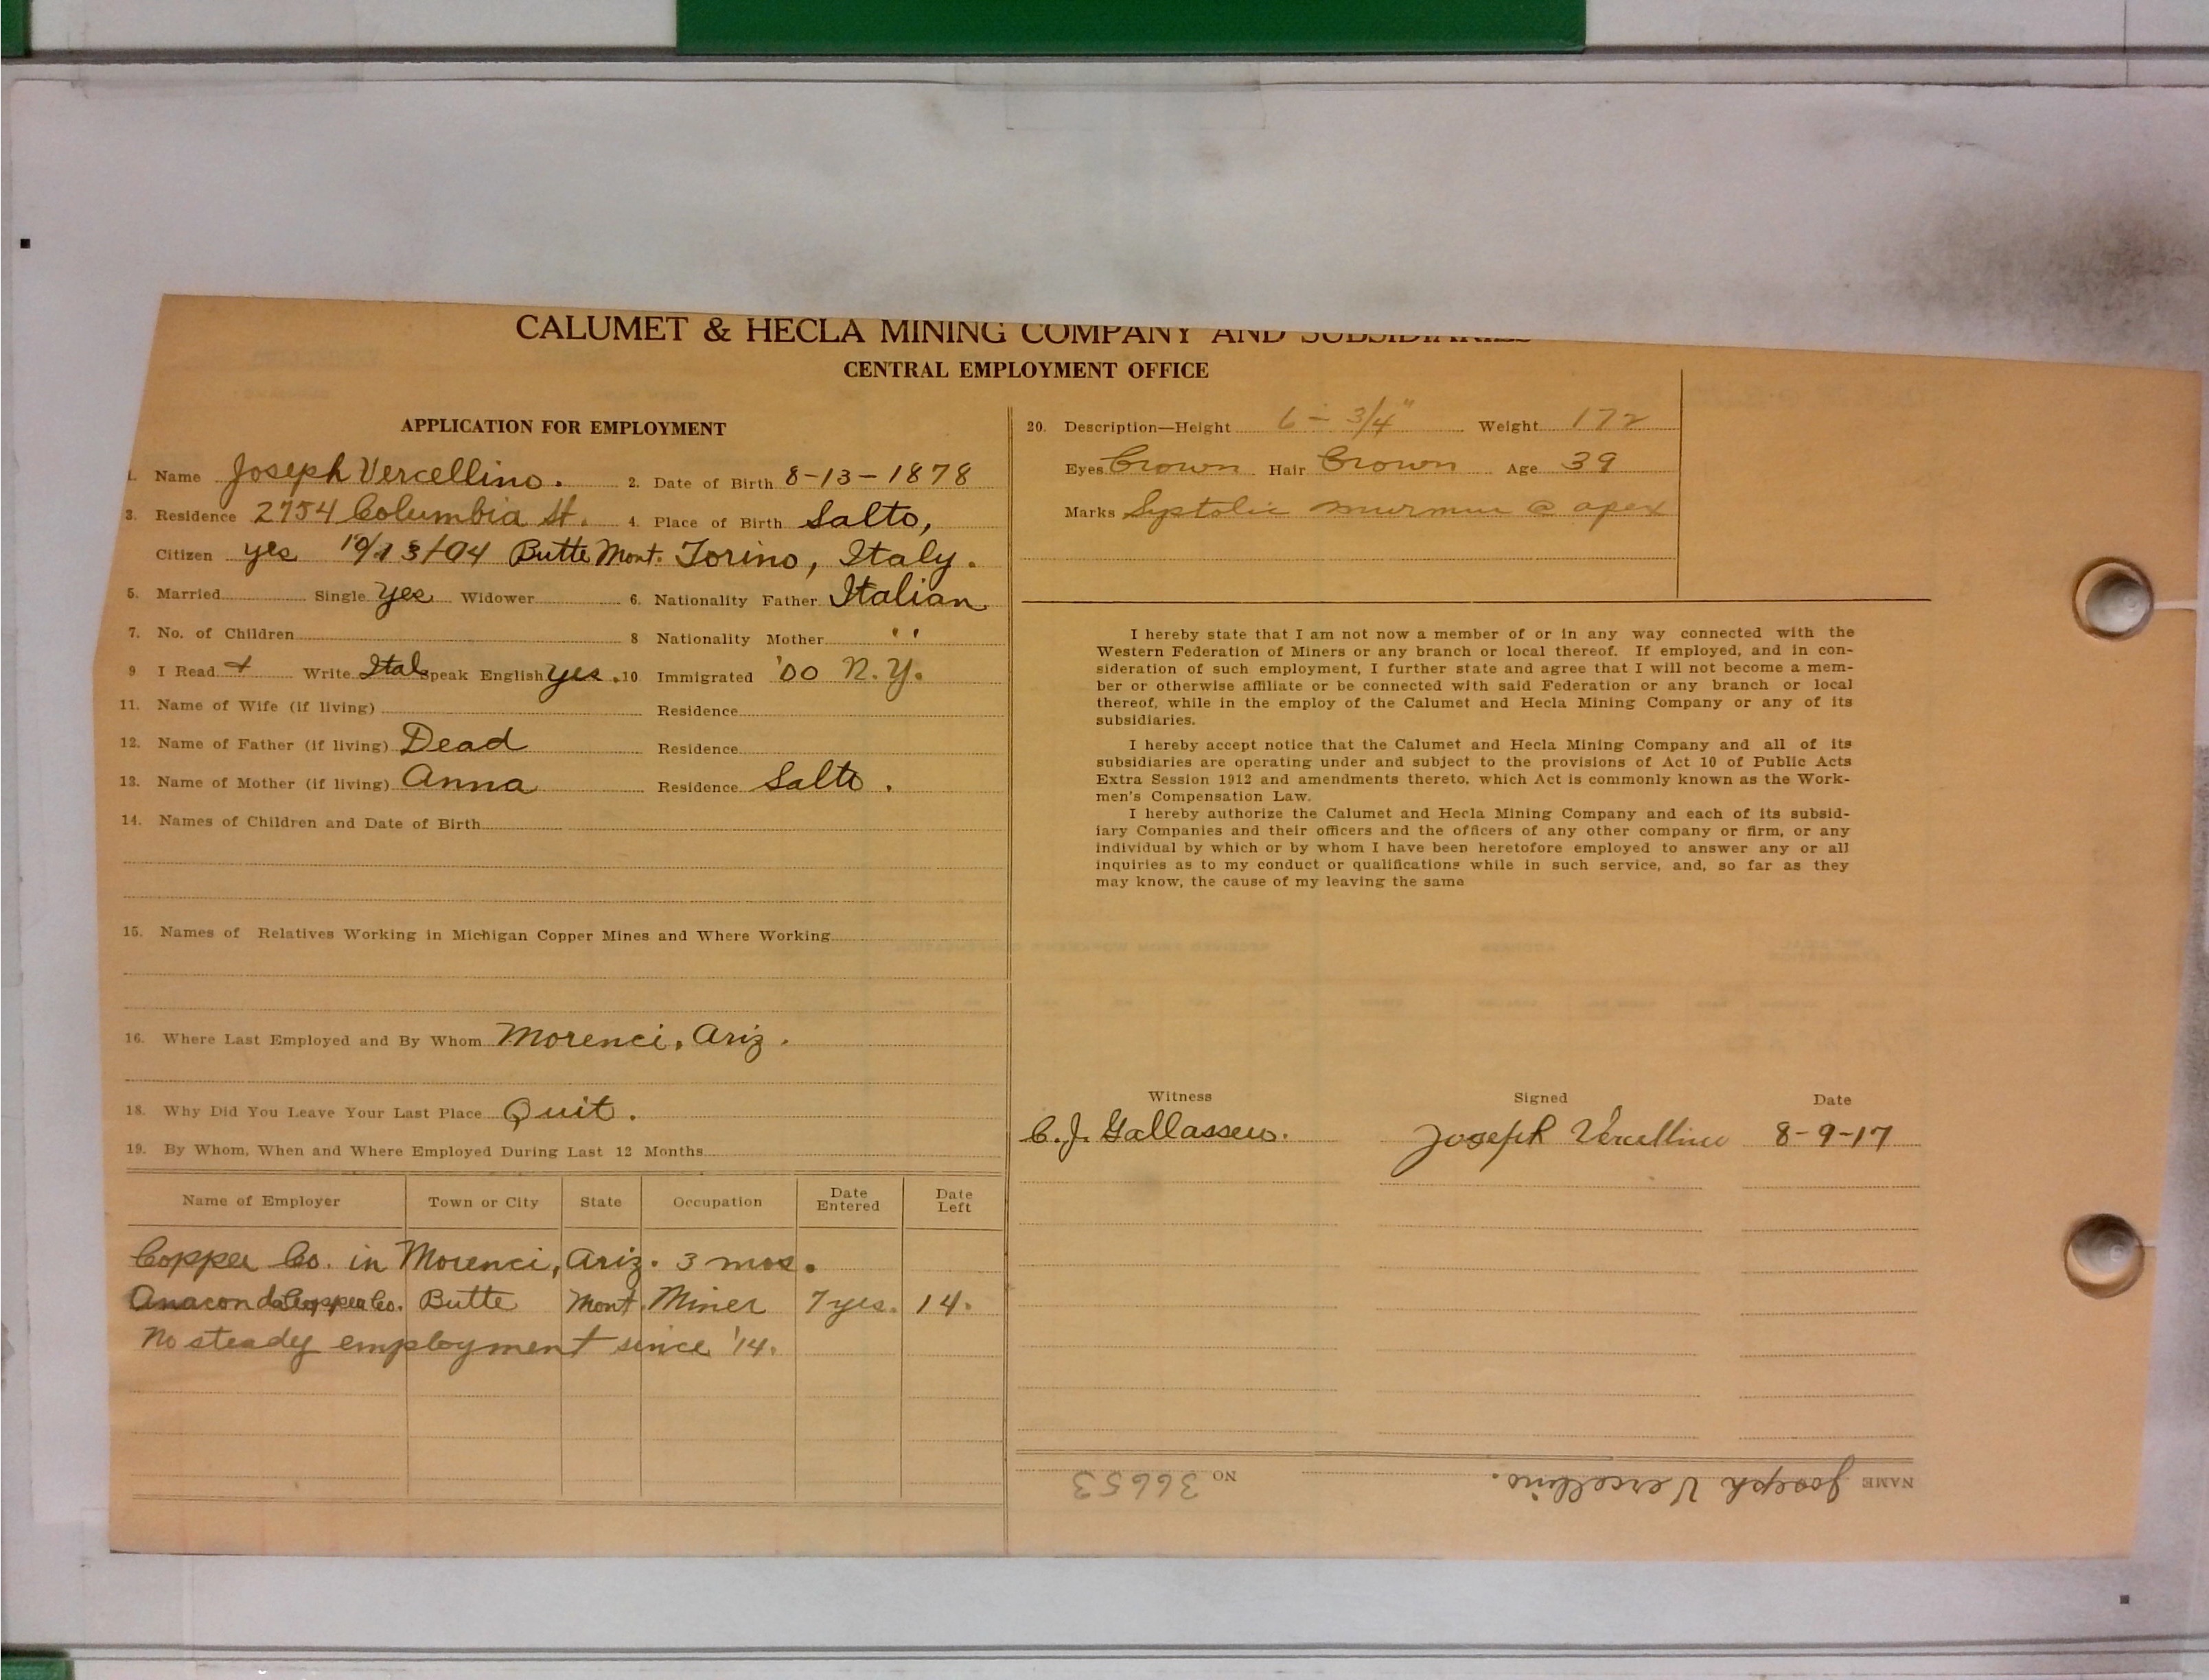 CALUMET & HECLA MINING COMPANY AND SUBSIDIARIES
CENTRAL EMPLOYMENT OFFICE
APPLICATION FOR EMPLOYMENT
1. Name Joseph Vercellino. 2. Date of Birth 8-13-1878
3. Residence 2754 Columbia St. 4. Place of Birth Salto,
Citizen yes 10/13/04 Butte Mont. Torino, Italy.
5. Married Single yes Widower 6. Nationality Father Italian
7. No. of Children 8 Nationality Mother " "
9 I Read + Write Ital Speak English yes. 10. Immigrated '00 N.Y.
11. Name of Wife (if living) Residence
12. Name of Father (if living) Dead Residence
13. Name of Mother (if living) Anna Residence Salto.
14. Names of Children and Date of Birth
15. Names of Relatives Working in Michigan Copper Mines and Where Working
16. Where Last Employed and By Whom Morenci, Ariz.
18. Why Did You Leave Your Last Place Quit.
19. By Whom, When and Where Employed During Last 12 Months
Name of Employer Town or City State Occupation Date Entered Date Left
Copper Co. in Morenci, Ariz. 3 mos.
Anaconda Copper Co. Butte Mont. Miner 7 yrs. 14.
No steady employment since '14.
20. Description—Height 6 - 3/4" Weight 172
Eyes Brown Hair Brown Age 39
Marks Systolic murmur @ apex
I hereby state that I am not now a member of or in any way connected with the
Western Federation of Miners or any branch or local thereof. If employed, and in con-
sideration of such employment, I further state and agree that I will not become a mem-
ber or otherwise affiliate or be connected with said Federation or any branch or local
thereof, while in the employ of the Calumet and Hecla Mining Company or any of its
subsidiaries.
I hereby accept notice that the Calumet and Hecla Mining Company and all of its
subsidiaries are operating under and subject to the provisions of Act 10 of Public Acts
Extra Session 1912 and amendments thereto, which Act is commonly known as the Work-
men's Compensation Law.
I hereby authorize the Calumet and Hecla Mining Company and each of its subsid-
iary Companies and their officers and the officers of any other company or firm, or any
individual by which or by whom I have been heretofore employed to answer any or all
inquiries as to my conduct or qualifications while in such service, and, so far as they
may know, the cause of my leaving the same
Witness Signed Date
C. J. Joseph Vercellino 8-9-17
NAME Joseph Vercellino. NO 36653